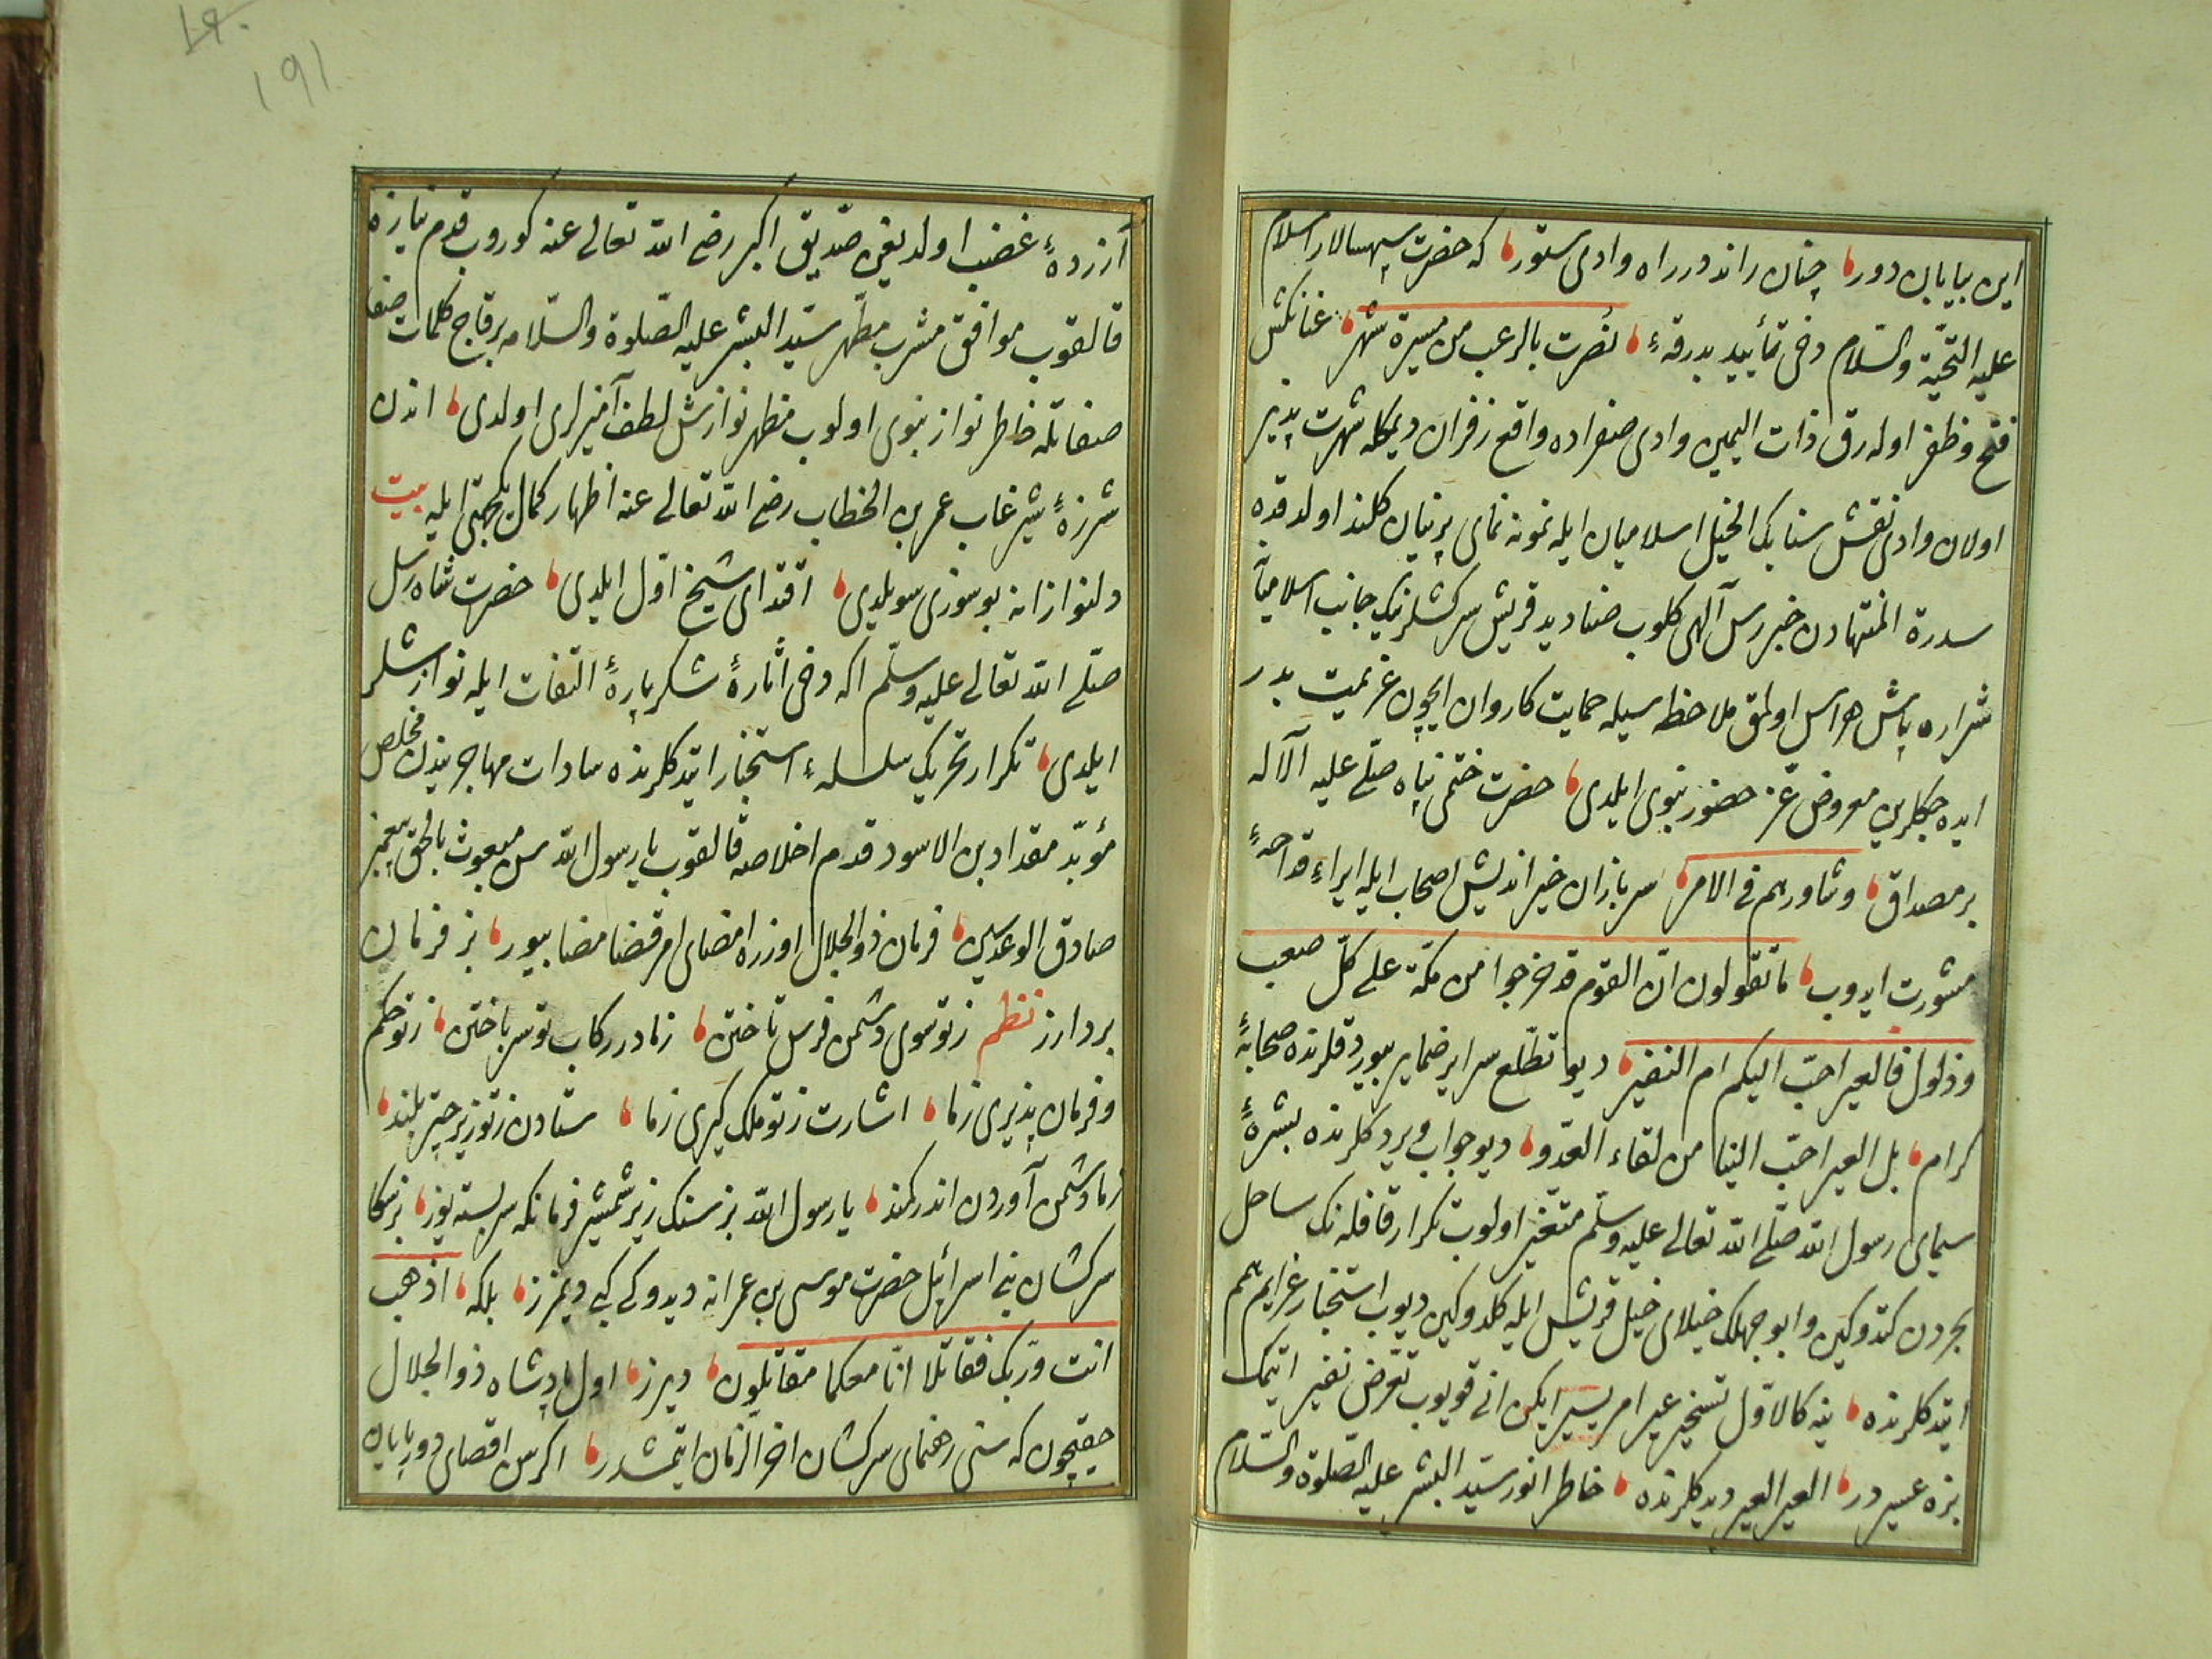 این بیابان دور، چنان راند در راه وادی ستور، که حضرت سپهسالار اسلام
علیه التحیّة والسّلام دخی تأیید بدرقهٔ، نُصرت بالرعب من مسیرة شهر، عنانکش
فتح وظفر اوله‌رق ذات الیمین وادی صفراده واقع زفران دیمکله شهرت پذیر
اولان وادی نقش سنابک الخیل اسلامیان ایله نمونه نمای پرنیان کلند اولدقده
سدرة المنتهادن خبر رس آلهی کلوب صنادید قریش سرکشلرینک جانب اسلامیانه
شراره پاش هراس اولمق ملاحظه سیله حمایت کاروان ایچون عزیمت بدر
ایده جکلرین معروض عزّ حضور نبوی ایلدی، حضرت ختمی پناه صلّی علیه الآله
بر مصداق، وشاورهم فی الامر، سربازان خیر اندیش اصحاب ایله ایراء قداحهٔ
مشورت ایدوب، ما تقولون انّ القوم قد خرجوا من مکّة علی کلّ صعب
وذلول فالعیر احبّ الیکم ام النفیر، دیو تطلّع سرایر ضمایر بیوردقلرنده صحابهٔ
کرام، بل العیر احبّ الینا من لقاء العدوّ، دیو جواب ویردکلرنده بشرهٔ
سیمای رسول الله صلّی الله تعالی علیه وسلّم متغیّر اولوب تکرار قافله نک ساحل
بحردن کتدوکین وابو جهلک خیلای خیل قریش ایله کلدوکین دیوب استخبار عزایم همم
ایتدکلرنده، ینه کالاوّل تسخیر عیر امر یسیر ایکن انی قویوب تعرّض نفیر ایتمک
بزه عسیر در، العیر العیر دیدکلرنده، خاطر انور سیّد البشر علیه الصّلوة والسّلام
191
آزردهٔ غضب اولدیغین صدّیق اکبر رضی الله تعالی عنه کوروب قدم نیازه
قالقوب موافق مشرب مطهّر سیّد البشر علیه الصّلوة والسّلام بر قاچ کلمات صفا
صفاتله خاطر نواز نبوی اولوب مظهر نوازش لطف آمیزلری اولدی، اندن
شرزهٔ شیر غاب عمر بن الخطاب رضی الله تعالی عنه اظهار کمال یکجهتی ایله بیت
دلنوازانه بو سوزی سویلدی، اقتدای شیخ اوّل ایلدی، حضرت شاه رسل
صلّی الله تعالی علیه وسلّم اکه دخی اثارهٔ شکر پارهٔ التفات ایله نوازشلر
ایلدی، تکرار تحریک سلسلهٔ استخبار ایتدکلرنده سادات مهاجریندن مخلص
مؤبّد مقداد بن الاسود قدم اخلاصه قالقوب یا رسول الله سن مبعوث بالحق پیغمبر
صادق الوعدسین، فرمان ذو الجلال اوزره امضای امر قضا مضا بیور، بز فرمان
بردارز نظم ز تو سوی دشمن فرس تاختن، ز ما در رکاب تو سر باختن، ز تو حکم
وفرمان پذیری ز ما، اشارت ز تو ملک کیری ز ما، ستادن ز تو زیر چتر بلند،
ز ما دشمن آوردن اندر کمند، یا رسول الله بز سنک زیر شمشیر فرمانکه سر بسته یوز، بز سکا
سرکشان بنی اسرائیل حضرت موسی بن عمرانه دیدوکی کبی دیمزز، بلکه، اذهب
انت وربّک فقاتلا انّا معکما مقاتلون، دیرز، اول پادشاه ذو الجلال
حقیچون که سنی رهنمای سرکشان اخر الزمان ایتمشدر، اکر سن اقصای دور پایان